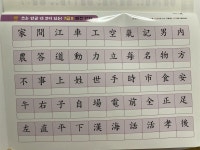 家間江車工空氣記男內
農答道動力立每名物方
不事上姓世手時市食安
午右子自場電前全正足
左直平下漢海話活孝後